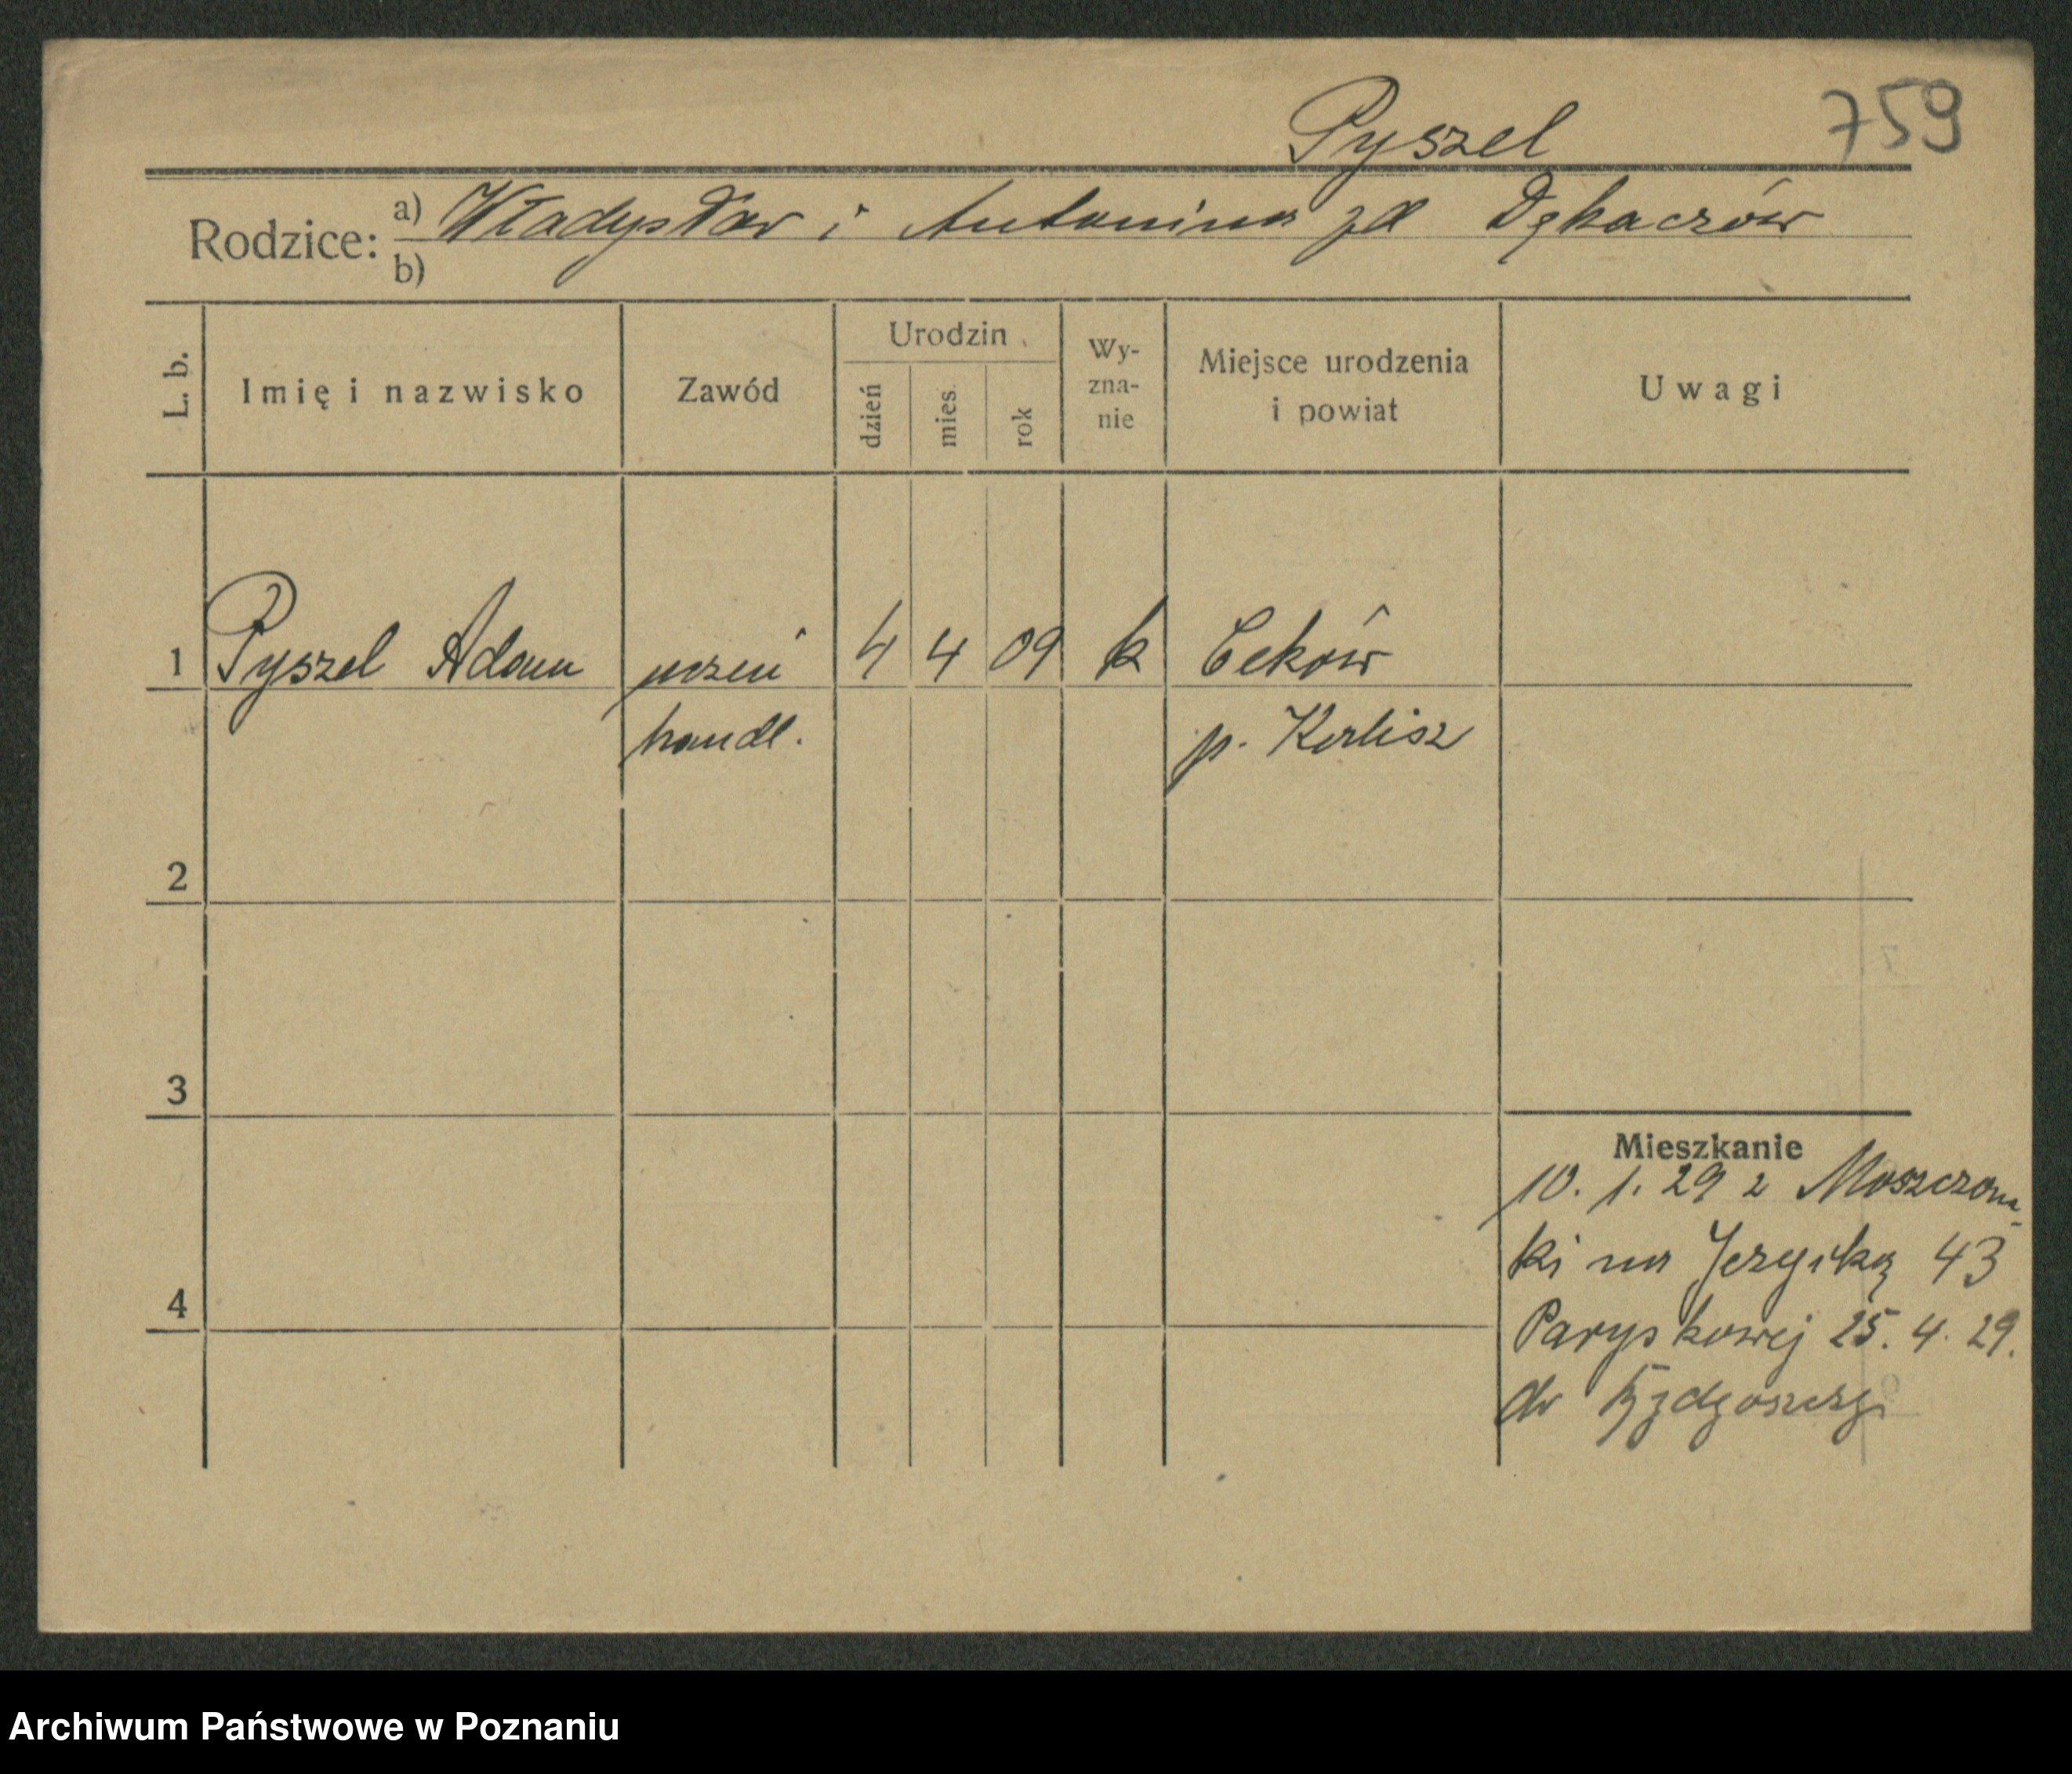 759
Pyszel
Rodzice: a) Władysław i Antonina zd Dękaczów
b)
L. b. Imię i nazwisko Zawód Urodzin dzień mies. rok Wy-zna-nie Miejsce urodzenia i powiat Uwagi
1 Pyszel Adam uczeń 4 4 09 k Ceków
handl. p. Kalisz
2
3
Mieszkanie
10. 1. 29 z
ki na 43
4
25. 4. 29.
do Bydgoszczy
Archiwum Państwowe w Poznaniu